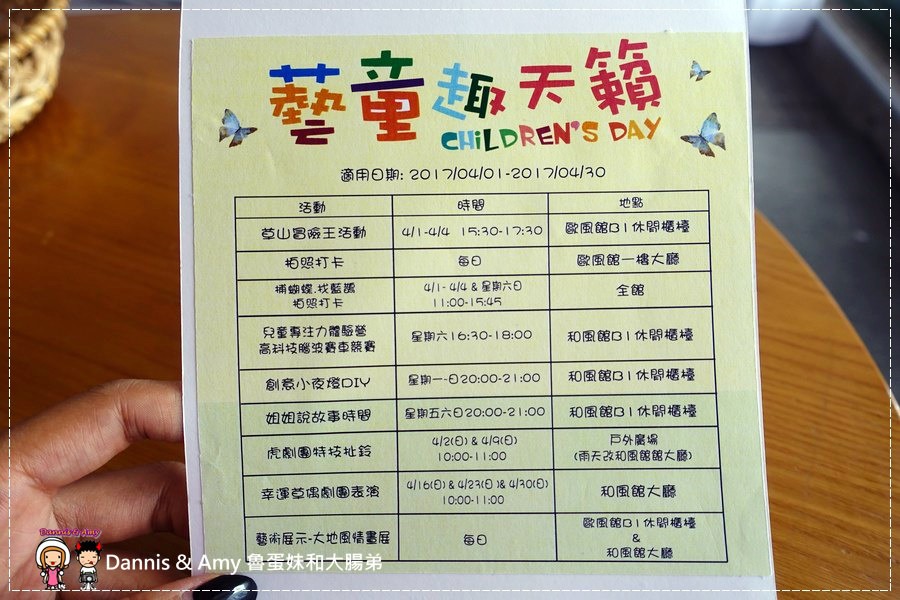 藝童趣天籟
CHiLDREN'S DAY
適用日期: 2017/04/01-2017/04/30
活動 時間 地點
草山冒險王活動 4/1-4/4 15:30-17:30 歐風館B1休閒櫃檯
拍照打卡 每日 歐風館一樓大廳
捕蝴蝶.找藍鵲
拍照打卡 4/1- 4/4 & 星期六日
11:00-15:45 全館
兒童專注力體驗營
高科技腦波賽車競賽 星期六16:30-18:00 和風館B1休閒櫃檯
創意小夜燈DIY 星期一-日20:00-21:00 和風館B1休閒櫃檯
姐姐說故事時間 星期五六日20:00-21:00 和風館B1休閒櫃檯
虎劇團特技扯鈴 4/2(日) & 4/9(日)
10:00-11:00 戶外廣場
(雨天改和風館館大廳)
幸運草偶劇團表演 4/16(日) & 4/23(日 )& 4/30(日)
10:00-11:00 和風館大廳
藝術展示-大地風情畫展 每日 歐風館B1休閒櫃檯
&
和風館大廳
Dannis & Amy
Dannis & Amy 魯蛋妹和大腸弟